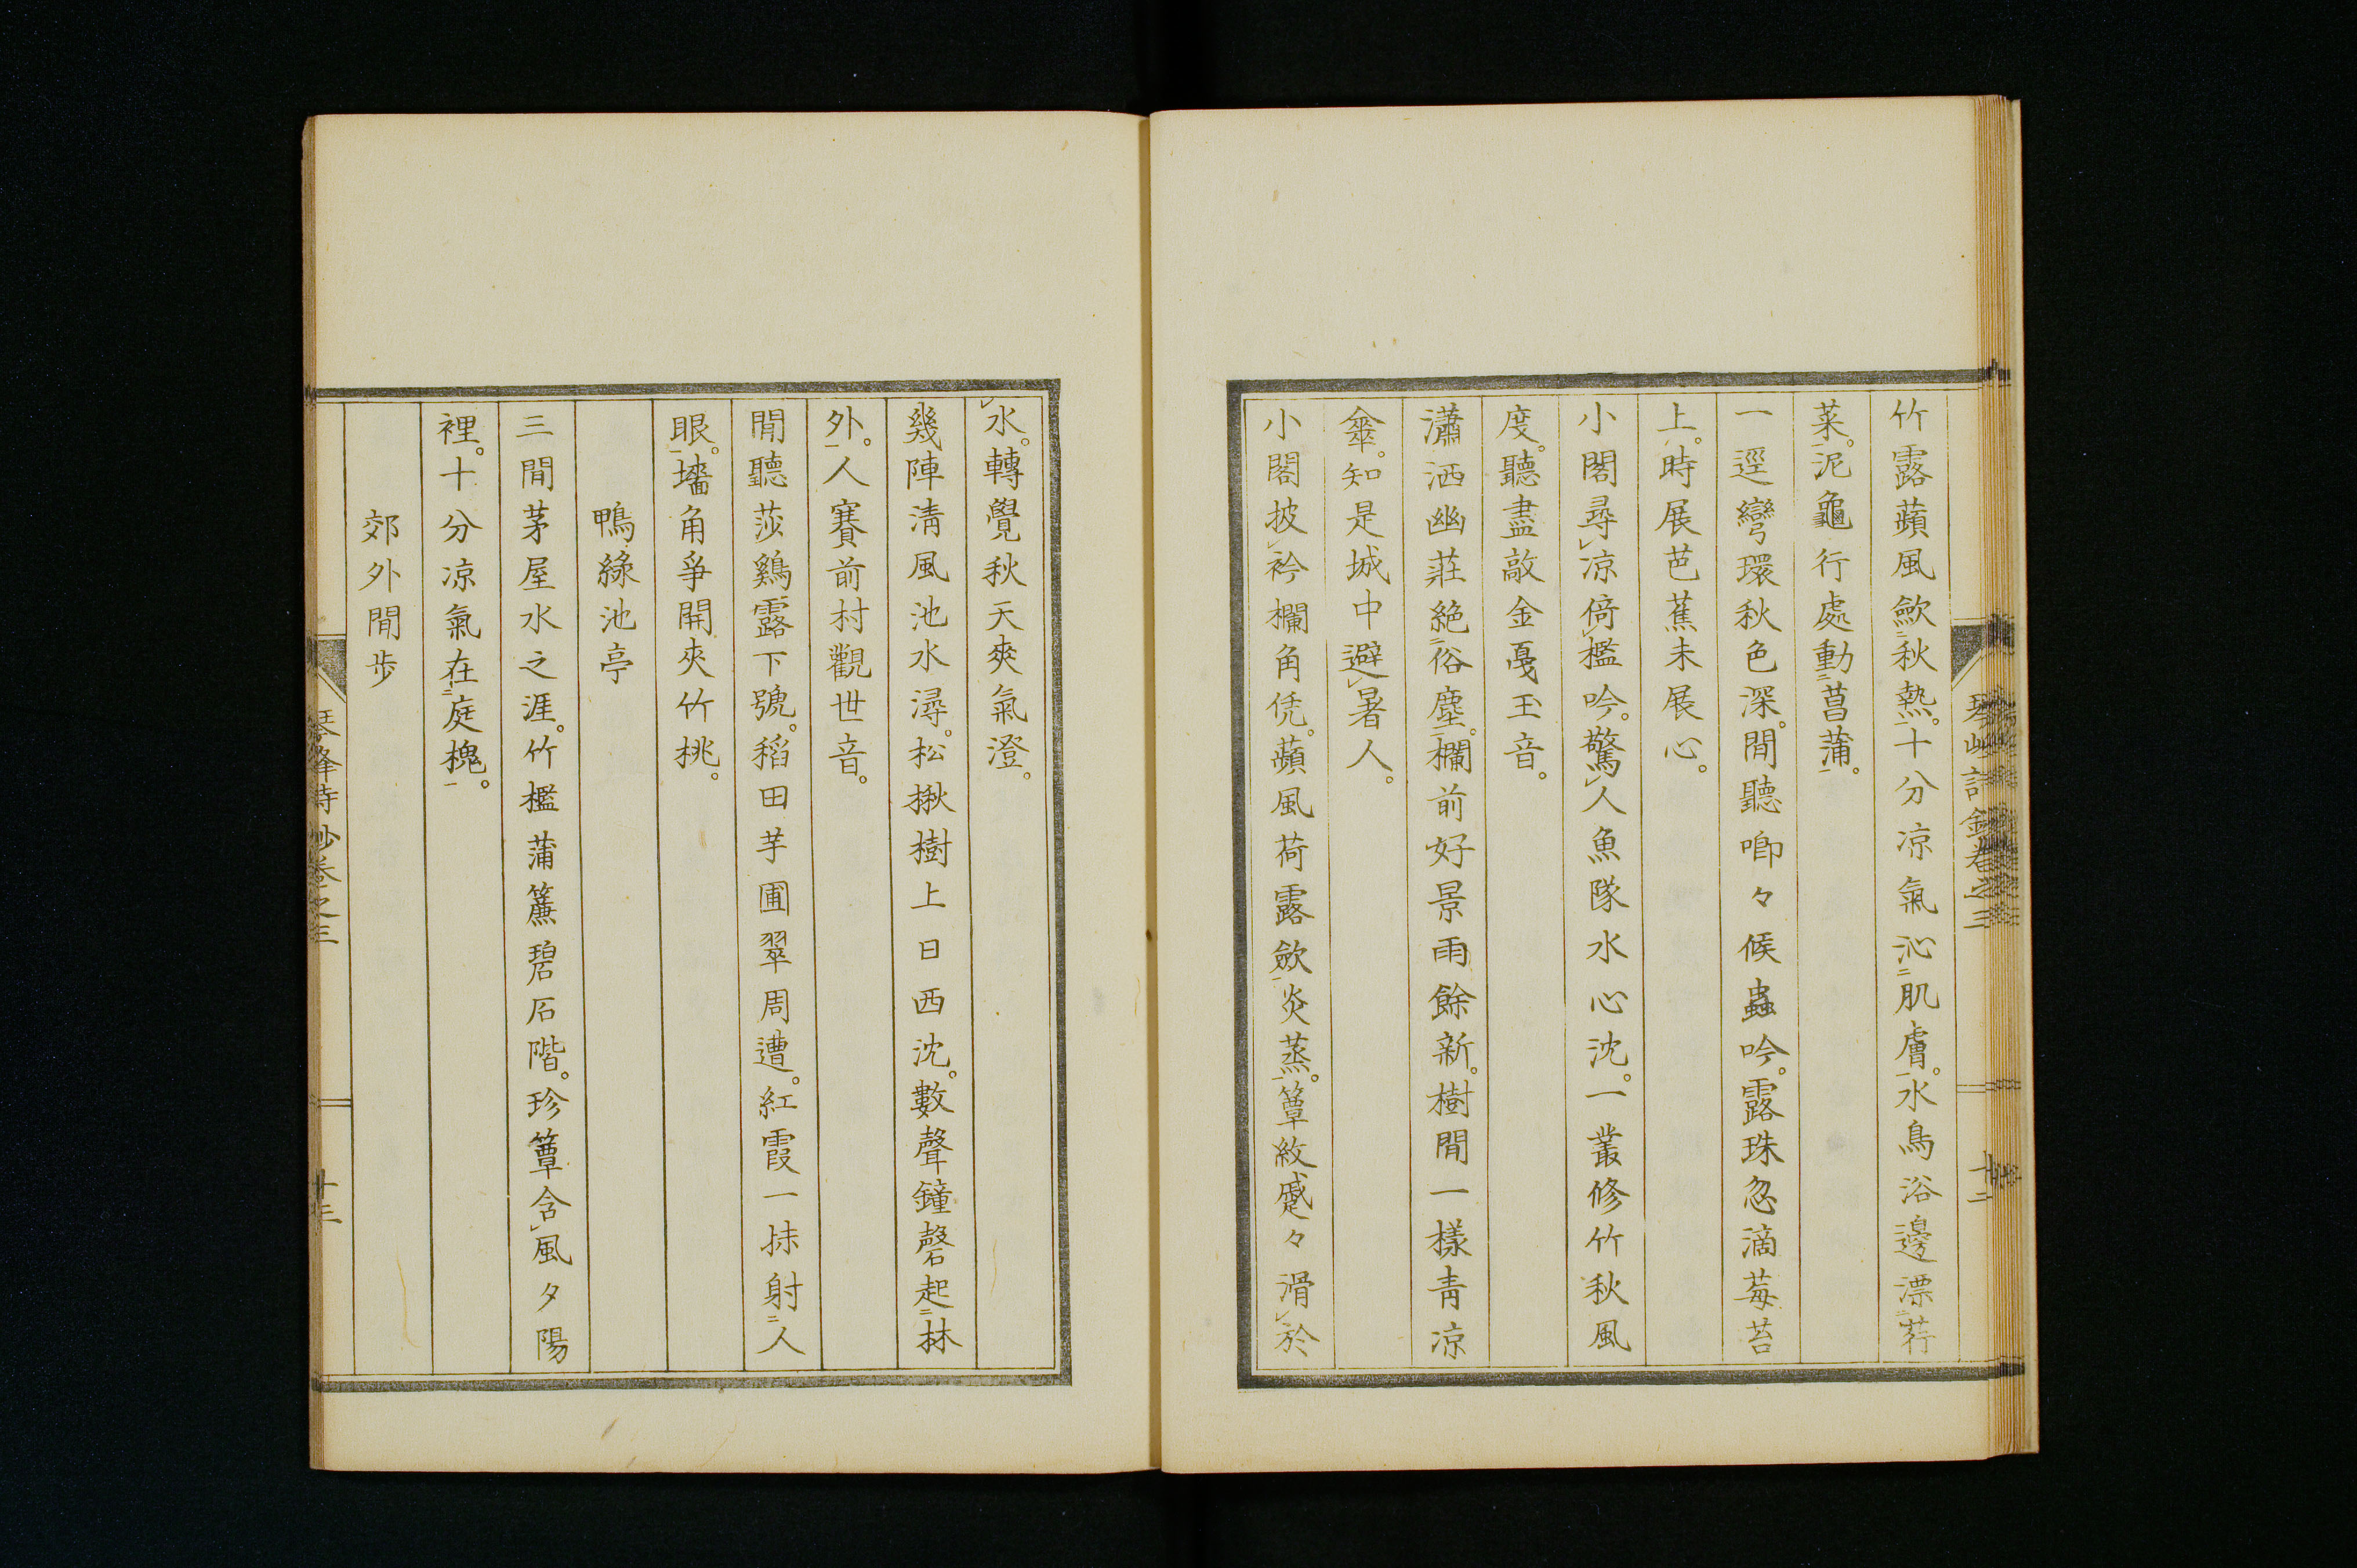 竹露蘋風歛秋熱。十分凉氣沁肌膚。水鳥浴邊漂荇
菜。泥龜行處動菖蒲。
一逕彎環秋色深。閒聽喞々候蟲吟。露珠忽滴莓苔
上。時展芭蕉未展心。
小閣尋凉倚檻吟。驚人魚隊水心沈。一叢修竹秋風
度。聽盡敲金戞玉音。
瀟洒幽莊絶俗塵。欄前好景雨餘新。樹間一樣青凉
傘。知是城中避暑人。
小閣披衿欄角凭。蘋風荷露歛炎蒸。簟紋蹙々滑於
水。轉覺秋天爽氣澄。
幾陣淸風池水潯。松楸樹上日西沈。數聲鐘磬起林
外。人賽前村觀世音。
閒聽莎鷄露下號。稻田芋圃翠周遭。紅霞一抹射人
眼。墻角爭開夾竹桃。
鴨綠池亭
三間茅屋水之涯。竹檻蒲簾碧石階。珍簟含風夕陽
裡。十分凉氣在庭槐。
郊外閒歩
琴峰詩鈔卷之三
十三